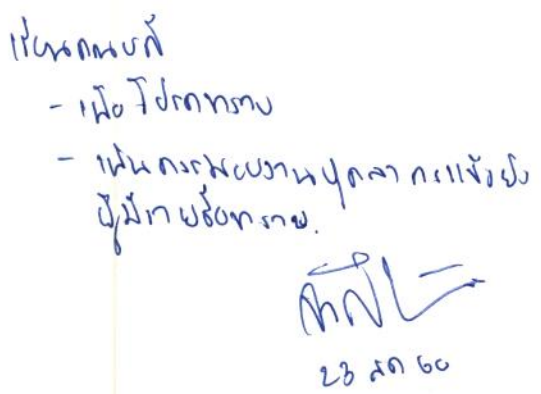 เรียนคณบดี
- เพื่อโปรดทราบ
- เห็นควรมอบงานบุคลากรแจ้งยัง
ผู้มีรายชื่อทราบ.
23 สค 60